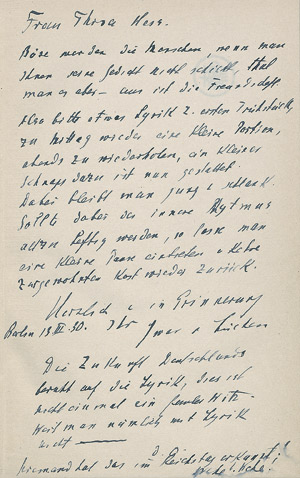 Frau Thea Hess.
Böse werden die Menschen, wenn man
ihnen seine Gedichte nicht schickt, thut
man es aber — aus ist die Freundschaft.
Also bitte etwas Lyrik z. ersten Frühstück,
zu Mittag wieder eine kleine Portion,
abends zu wiederholen, ein kleiner
Schnaps dazu ist nur gestattet.
Dabei bleibt man jung & schlank.
Sollte dabei der innere Rhytmus
allzu heftig werden, so lasse man
eine kleine Pause eintreten & kehre
zur gewohnten Kost wieder zurück.
Herzlich & in Erinnerung
Berlin 13 III 30. Ihr
Die Zukunft Deutschlands
beruht auf die Lyrik, dies ist
nicht einmal ein fauler Witz.
Weil man nämlich mit Lyrik
nicht —
niemand hat das im Reichstag erkannt!